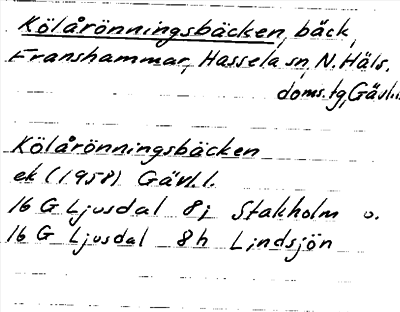 Kölårönningsbäcken, bäck,
Franshammar, Hassela sn, N. Häls.
doms.tg, Gävl.l.
Kölårönningsbäcken
ek (1958) Gävl.l.
16 G Ljusdal 8j Stakholm o.
16 G Ljusdal 8h Lindsjön